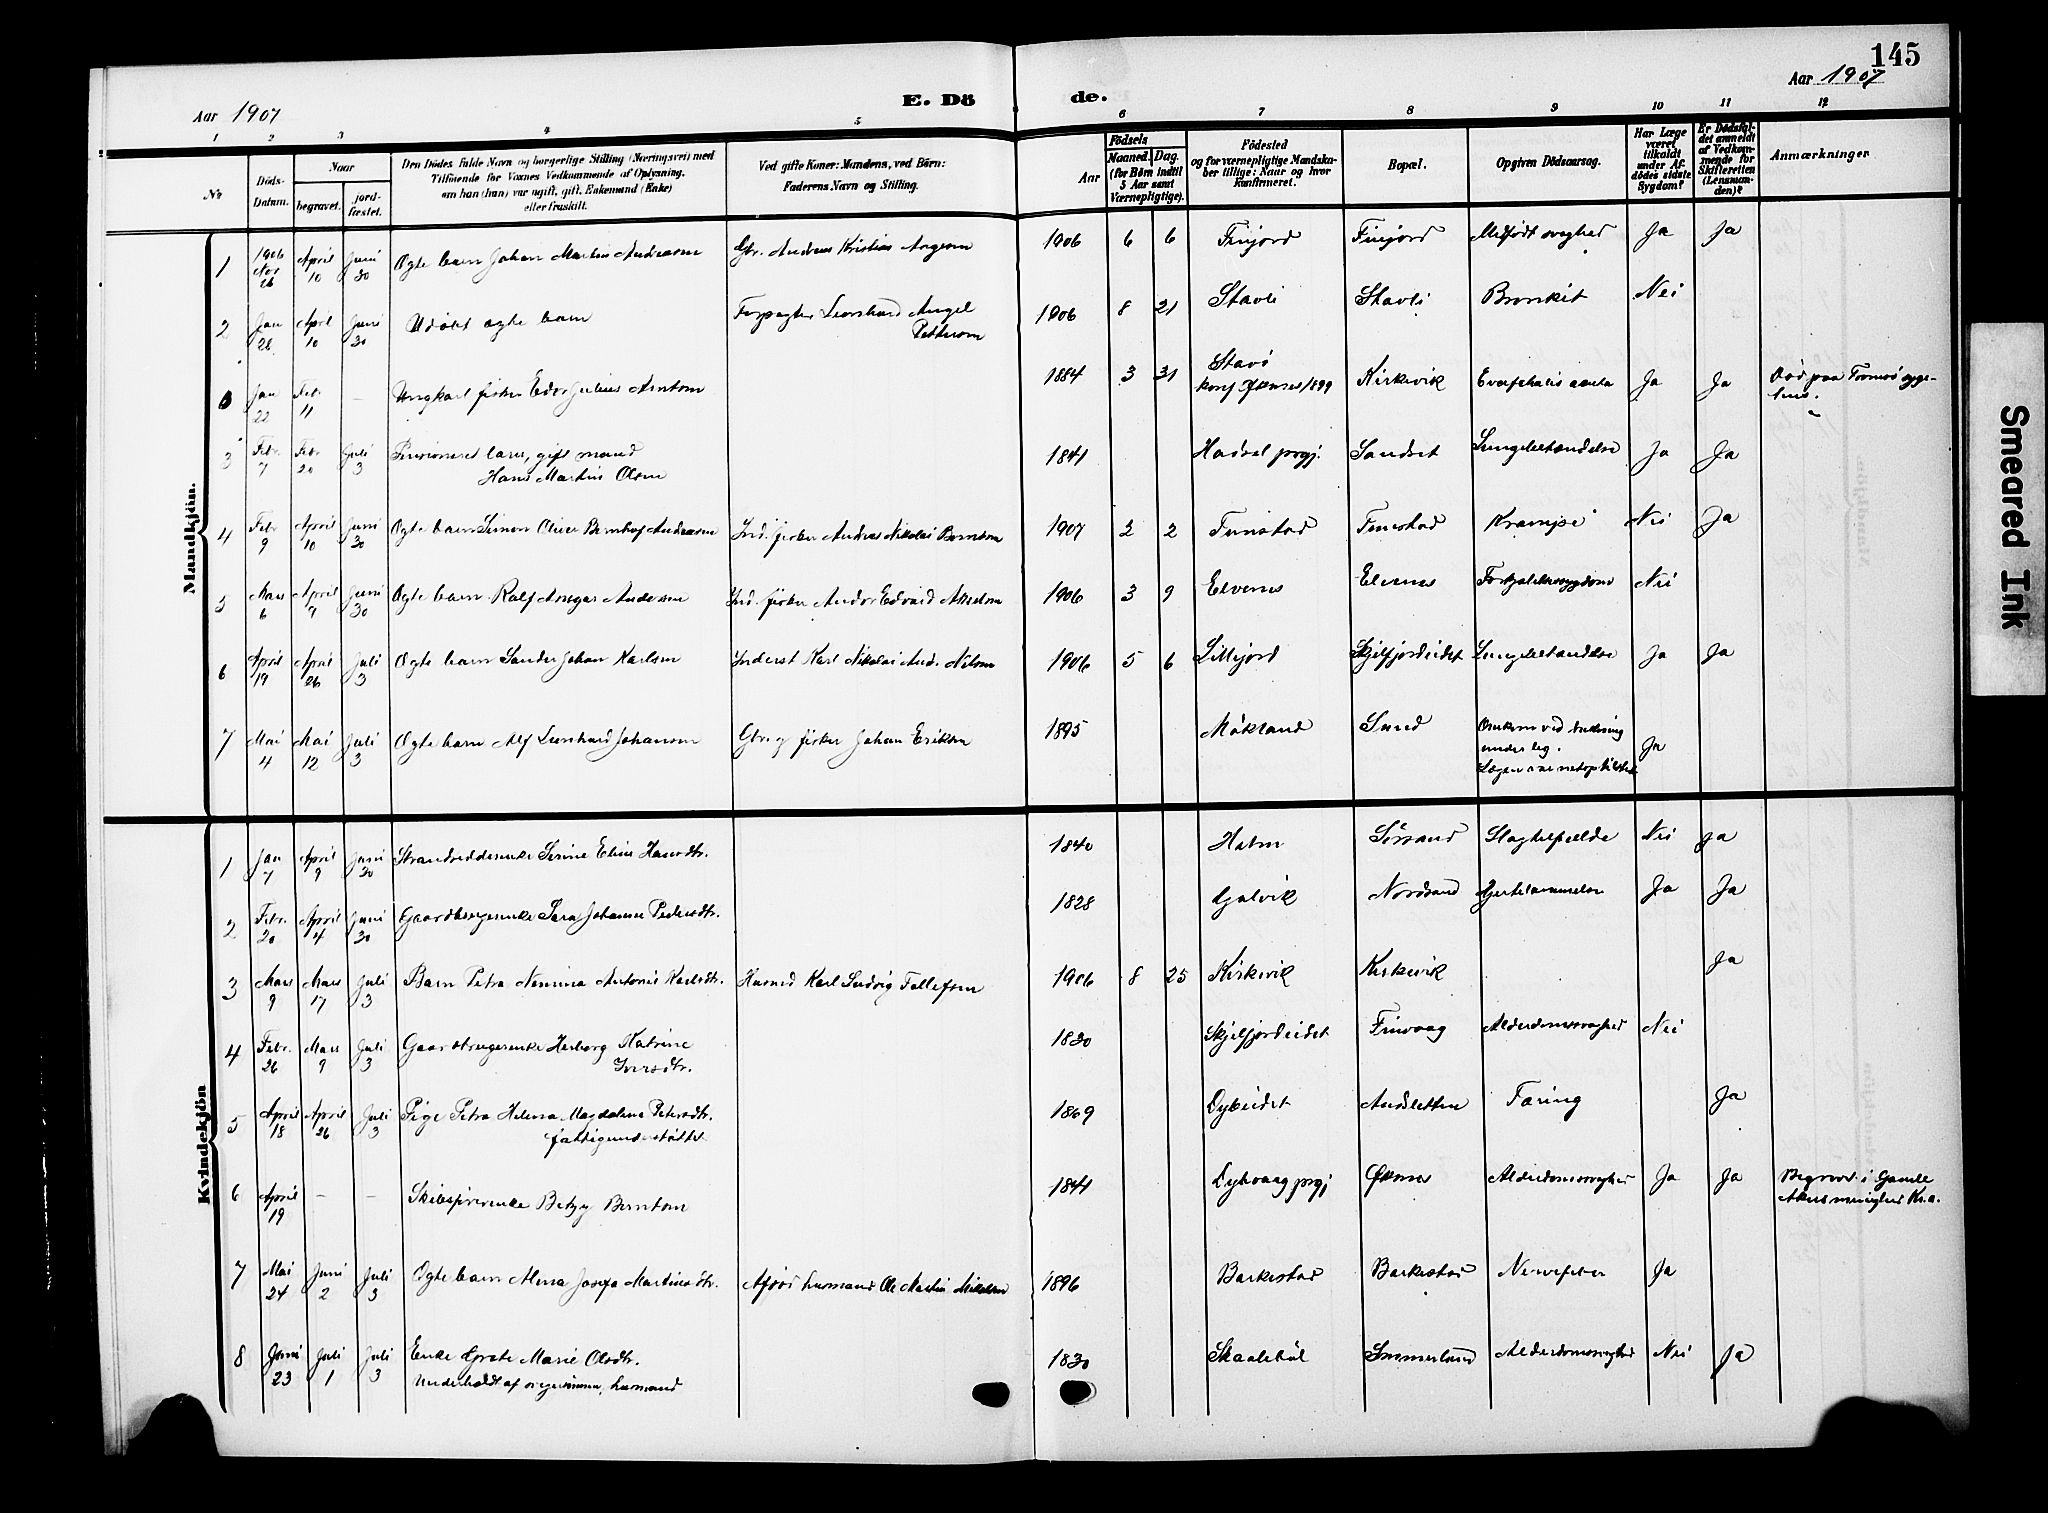 145
Aar 1907
E. Dö
de.
Aar 1907
1 2 3 4 5 6 7 8 9 10 11 12
Nr
Döds-
Datum.
Naar
begravet.
jord-
fæstet.
Den Dödes fulde Navn og borgerlige Stilling (Næringsvei) med
Tilföiende for Voxnes Vedkommende af Oplysning,
om han (hun) var ugift, gift, Enkemand (Enke)
eller fraskilt.
Ved gifte Koner: Mandens, ved Börn:
Faderens Navn og Stilling.
Födsels
Aar
Maaned.
Dag.
(for Börn indtil
5 Aar samt
Værnepligtige).
Födested
og for værnepligtige Mandska-
ber tillige: Naar og hvor
konfirmeret.
Bopæl.
Opgiven Dödsaarsag.
Har Læge
været
tilkaldt
under Af-
dödes sidste
Sygdom?
Er Dödsfal-
det anmeldt
af Vedkom-
mende for
Skifteretten
(Lensman-
den)?
Anmærkninger
Mandkjön.
1 1906 Nov 26 April 10 Juni 30 Ægte barn Johan Martin Andreasen Gbr. Andreas Kristian 1906 6 6 Finjord Finjord Medfødt svaghed Ja Ja
2 Jan 28 April 10 Juni 30 Udøbt ægte barn Forpagter Leonhard Angel
Pettersen 1906 8 21 Stavli Stavli Bronkit Nei
0 Jan 22 Febr 11 — Ungkarl fisker Edvor Julius Arntsen 1884 3 31 Stavø
konf Øksnes 1899 Kirkevik Ja Ja Død paa Tromsø syge-
hus.
3 Febr. 7 Febr 20 Juli 3 gift mand
Hans Martin Olsen 1841 Hadsel prgj. Sandset Lungebetændelse Ja Ja
4 Febr 9 April 10 Juni 30 Ægte barn Simon Oliver Bernhof Andreasen Ind. fisker Andreas Nikolai Berntsen 1907 2 2 Tunstad Tunstad Krampe Nei Ja
5 Mars 6 April 9 Juni 30 Ægte barn Ralf Ansgar Andersen Ind. fisker Andor Edvard 1906 3 9 Elvenes Elvenes Forkjølelsessygdom Nei
6 April 19 April 26 Juli 3 Ægte barn Sander Johan Karlsen Inderst Karl Nikolai And. Nilsen 1906 5 6 Lillejord Skjelfjordeidet Lungebetændelse Ja Ja
7 Mai 4 Mai 12 Juli 3 Ægte barn Alf Leonhard Johansen Gbr og fisker Johan Eriksen 1895 Møkland Sund Omkom ved
under leg.
Lægen var netop tilstede Ja
Kvindekjön
1 Jan 7 April 9 Juni 30 Strandsidderenke Serine Elina Hansdtr. 1840 Holm Sørsand Slagtilfælde Nei Ja
2 Febr. 20 April 4 Juni 30 Gaardbrugerenke Sara Johanna Pedersdtr. 1828 Gjølvik Nordsand Hjertelammelse Ja Ja
3 Mars 9 Mars 17 Juli 3 Barn Petra Nennina Antonie Karlsdtr. Husmd Karl Ludvig Tollefsen 1906 8 25 Kirkevik Kirkevik Ja
4 Febr. 26 Mars 9 Juli 3 Gaardbrugerenke Herborg Katrine
Iversdtr. 1820 Skjelfjordeidet Finvaag Alderdomssvaghed Nei
5 April 18 April 26 Juli 3 Pige Petra Helena Magdalena Petersdtr.
fattigunderstøttet 1869 Dybeidet Andsletten Tæring Ja
6 April 19 — — Skibsførerenke Betzy Berntsen 1841 Dybvaag prgj Øksnes Alderdomssvaghed Ja Ja Begravet i Gamle
Akers menighed Kr.a.
7 Mai 24 Juni 2 Juli 3 Ægte barn Alma Josefa Martinsdtr. Afdød husmand Ole Martin Mikalsen 1896 Barkestad Barkestad Nervefeber Ja
8 Juni 23 Juli 1 Juli 3 Enke Grete Marie Olsdtr.
Underholdt af svigersønnen, husmand 1830 Skaalebøl Sommerland Alderdomssvaghed Nei Ja
Smeared Ink